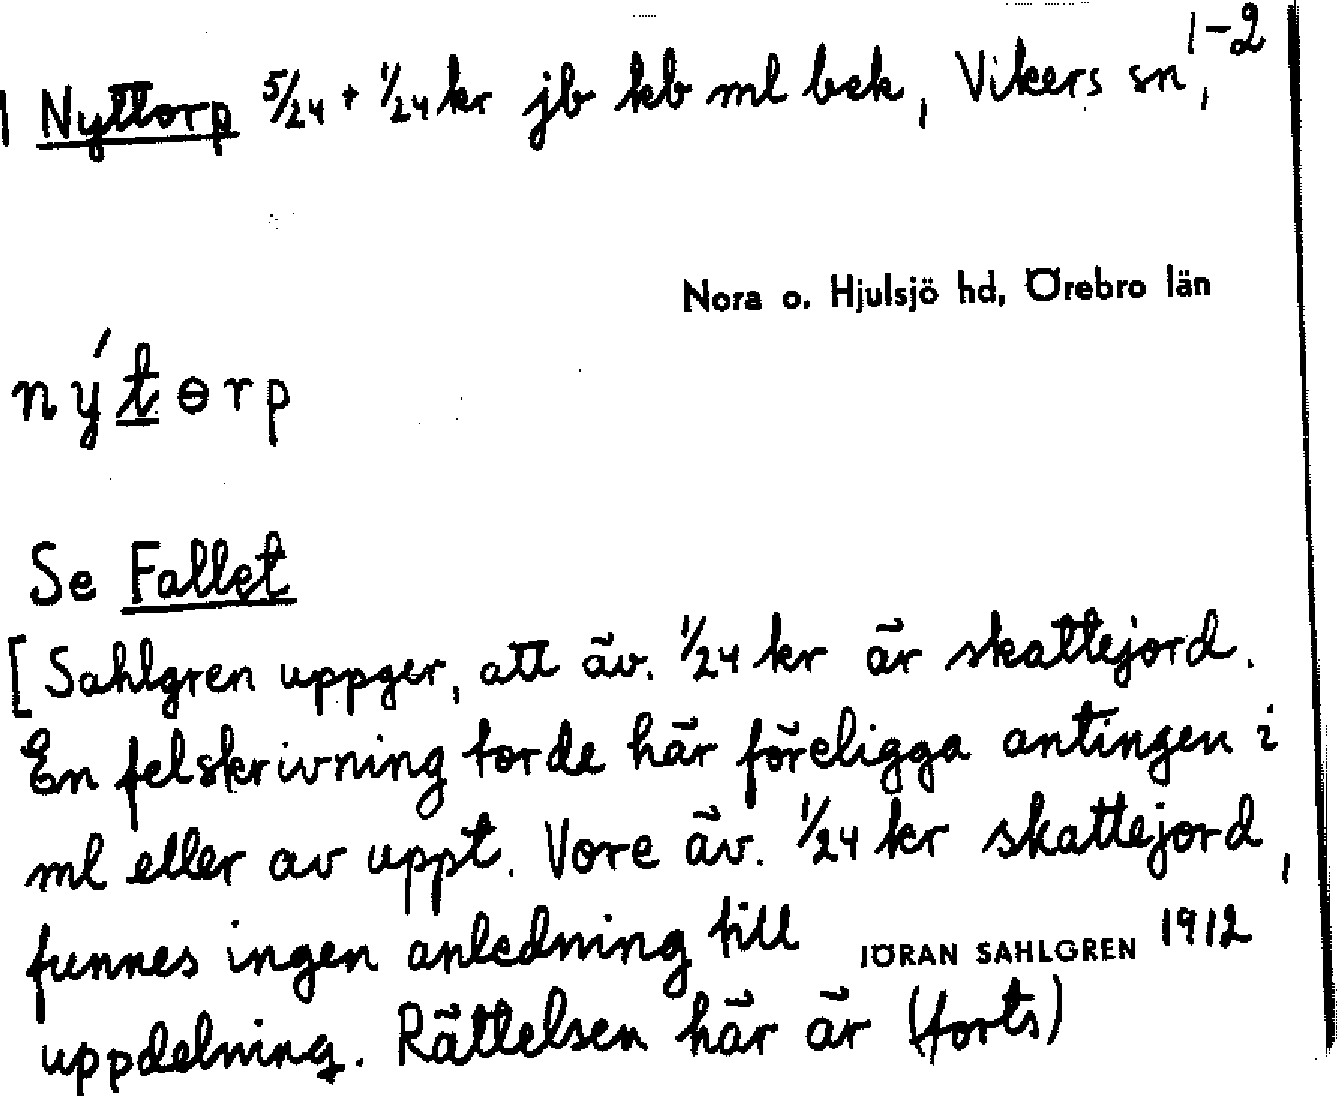 1-2
Nyttorp 5/24 + 1/24 kr jb kb ml bek, Vikers sn,
Nora o. Hjulsjö hd, Örebro län
nýtɵrp
Se Fallet
[Sahlgren uppger, att äv. 1/24 kr är skattejord.
En felskrivning torde här föreligga antingen i
ml eller av uppt. Vore äv. 1/24 kr skattejord,
funnes ingen anledning till
JÖRAN SAHLGREN 1912
uppdelning. Rättelsen här är (forts)